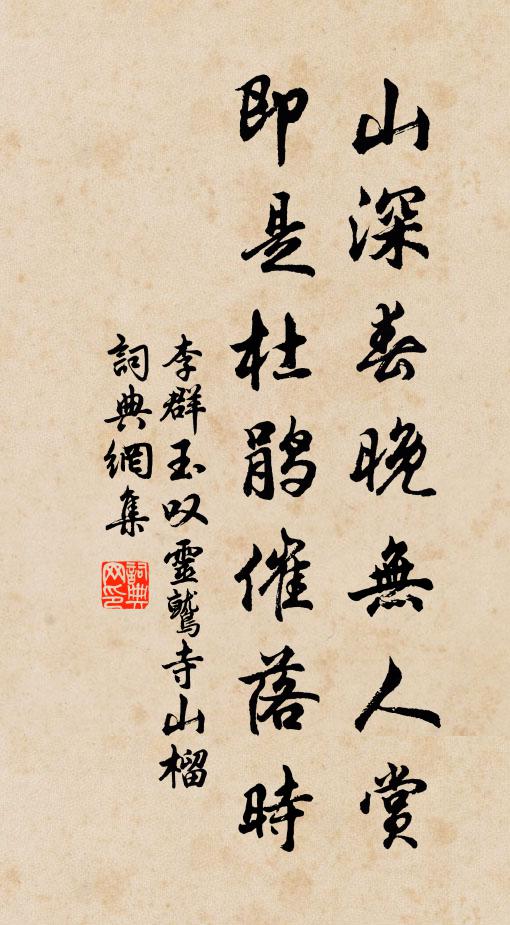 山深春晚無人賞
即是杜鹃催落時
李群玉叹靈鷲寺山榴
詞典網集
詞典网印